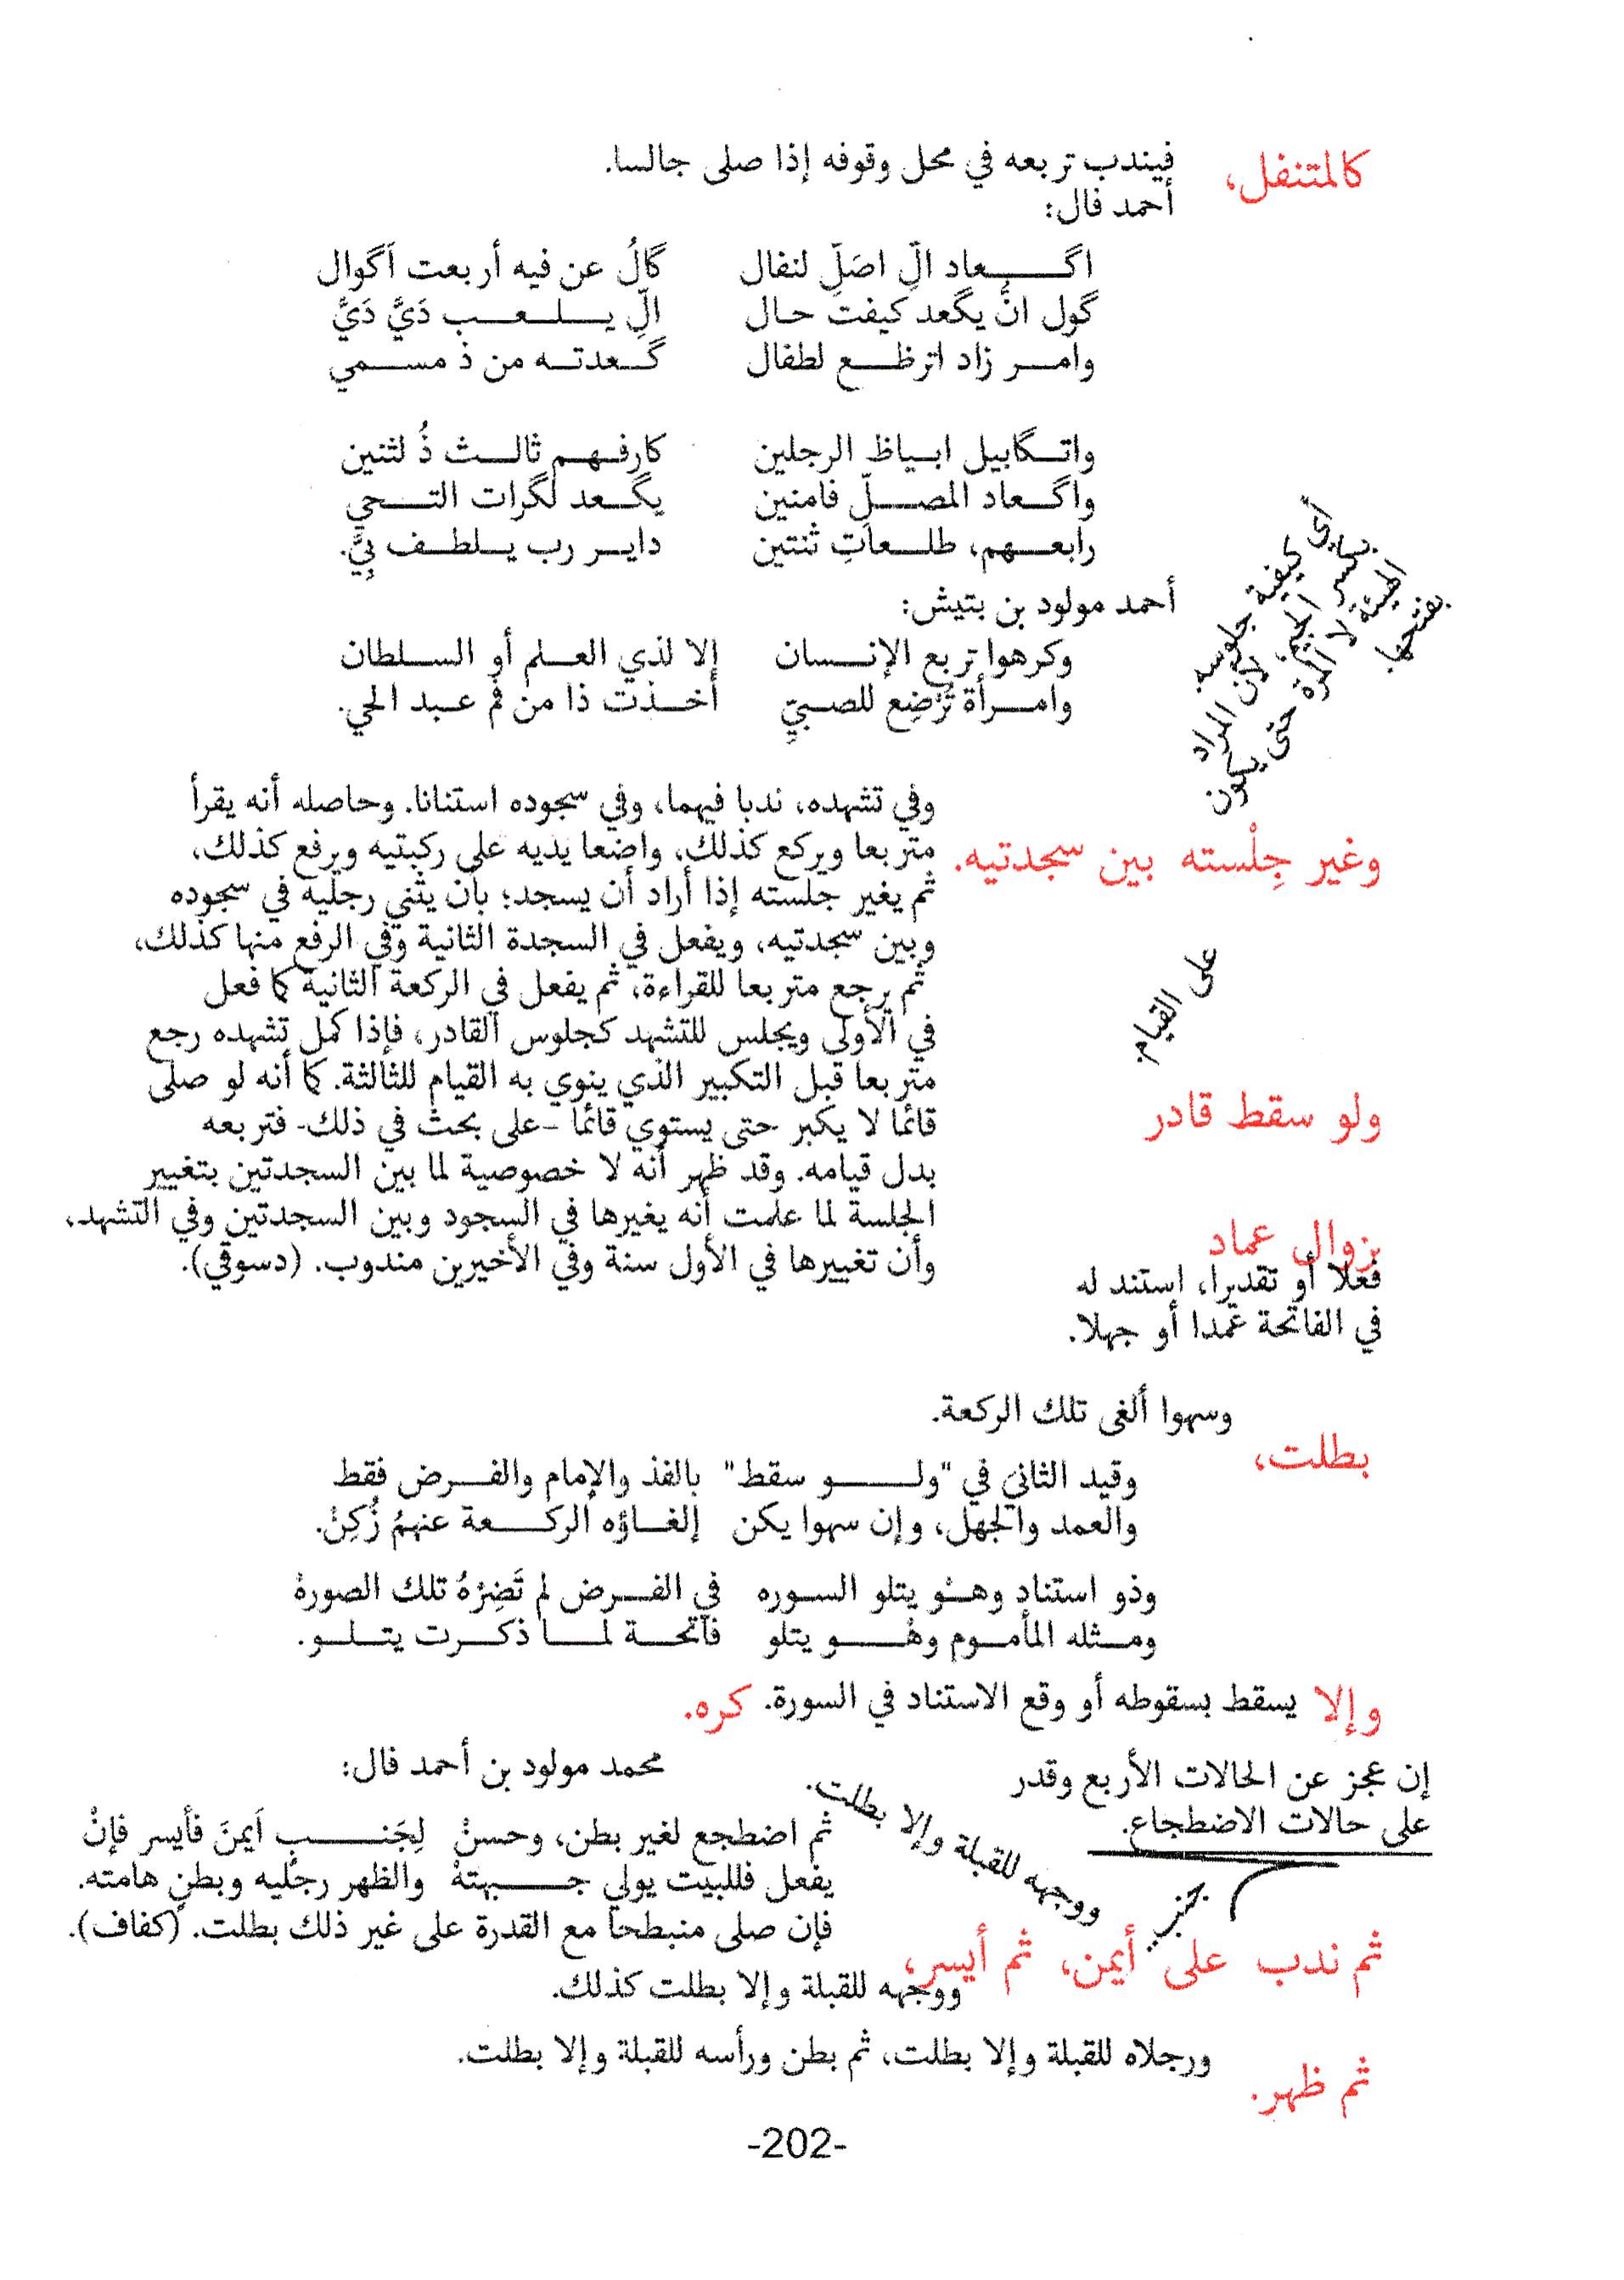 كالمتنفل،
فيندب تربعه في محل وقوفه إذا صلى جالسا.
أحمد فال:
اگـعاد الِّ اصَلِّ لنفال گالُ عن فيه أربعت اَگوال
گول انُّ يگعد كيفت حال الِّ يلعب دَيَّ دَيَّ
وامر زاد اترظع لطفال گعدته من ذ مسمي
واتگابيل ابياظ الرجلين كارفهم ثالث ذُ لثنين
واگعاد المصلِّ فامنين يگعد لگرات التحي
رابعهم، طلعاتِ ثنتين داير رب يلطف بِيَّ.
أحمد مولود بن بتيش:
وكرهوا تربع الإنسان إلا لذي العلم أو السلطان
وامرأة تُرْضِع للصبيِّ أخذت ذا من فم عبد الحي.
أي كيفية جلوسه
بكسر الجيم، لأن المراد
الهيئة لا المرة حتى يكون
بفتحها
وغير جِلْسته بين سجدتيه.
وفي تشهده، ندبا فيهما، وفي سجوده استنانا. وحاصله أنه يقرأ
متربعا ويركع كذلك، واضعا يديه على ركبتيه ويرفع كذلك،
ثم يغير جلسته إذا أراد أن يسجد؛ بأن يثني رجليه في سجوده
وبين سجدتيه، ويفعل في السجدة الثانية وفي الرفع منها كذلك،
ثم يرجع متربعا للقراءة، ثم يفعل في الركعة الثانية كما فعل
في الأولى ويجلس للتشهد كجلوس القادر، فإذا كمل تشهده رجع
متربعا قبل التكبير الذي ينوي به القيام للثالثة. كما أنه لو صلى
قائما لا يكبر حتى يستوي قائما -على بحث في ذلك- فتربعه
بدل قيامه. وقد ظهر أنه لا خصوصية لما بين السجدتين بتغيير
الجلسة لما علمت أنه يغيرها في السجود وبين السجدتين وفي التشهد،
وأن تغييرها في الأول سنة وفي الأخيرين مندوب. (دسوقي).
على القيام.
ولو سقط قادر
بزوال عماد
فعلا أو تقديرا، استند له
في الفاتحة عمدا أو جهلا.
بطلت،
وسهوا ألغى تلك الركعة.
وقيد الثاني في "ولو سقط" بالفذ والإمام والفرض فقط
والعمد والجهل، وإن سهوا يكن إلغاؤه الركعة عنهمُ زُكِنْ.
وذو استناد وهْو يتلو السوره في الفرض لم تَضِرْهُ تلك الصورهْ
ومثله المأموم وهْو يتلو فاتحة لما ذكرت يتلو.
وإلا يسقط بسقوطه أو وقع الاستناد في السورة. كره.
إن عجز عن الحالات الأربع وقدر
على حالات الاضطجاع.
محمد مولود بن أحمد فال:
ثم اضطجع لغير بطن، وحسنْ لِجَنب اَيمنَ فأيسر فإنْ
يفعل فللبيت يولي جبهتهْ والظهر رجليه وبطنٍ هامته.
فإن صلى منبطحا مع القدرة على غير ذلك بطلت. (كفاف).
جنب.
ووجهه للقبلة وإلا بطلت.
ثم ندب على أيمن، ثم أيسر،
ووجهه للقبلة وإلا بطلت كذلك.
ثم ظهر.
ورجلاه للقبلة وإلا بطلت، ثم بطن ورأسه للقبلة وإلا بطلت.
-202-